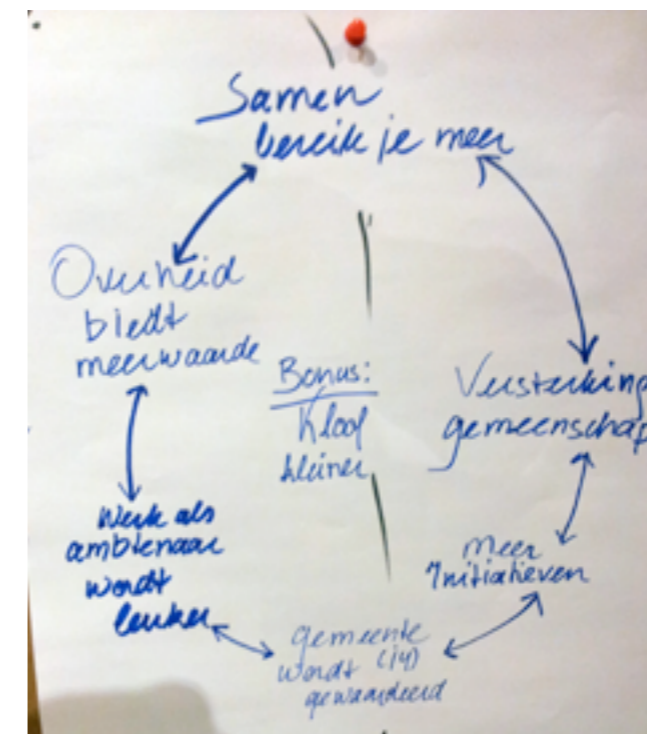 Samen
bereik je meer
Overheid
biedt
meerwaarde
Bonus:
Kloof
kleiner
Versterking
gemeenschap
Werk als
ambtenaar
wordt
leuker
meer
Initiatieven
gemeente
wordt (jij)
gewaardeerd